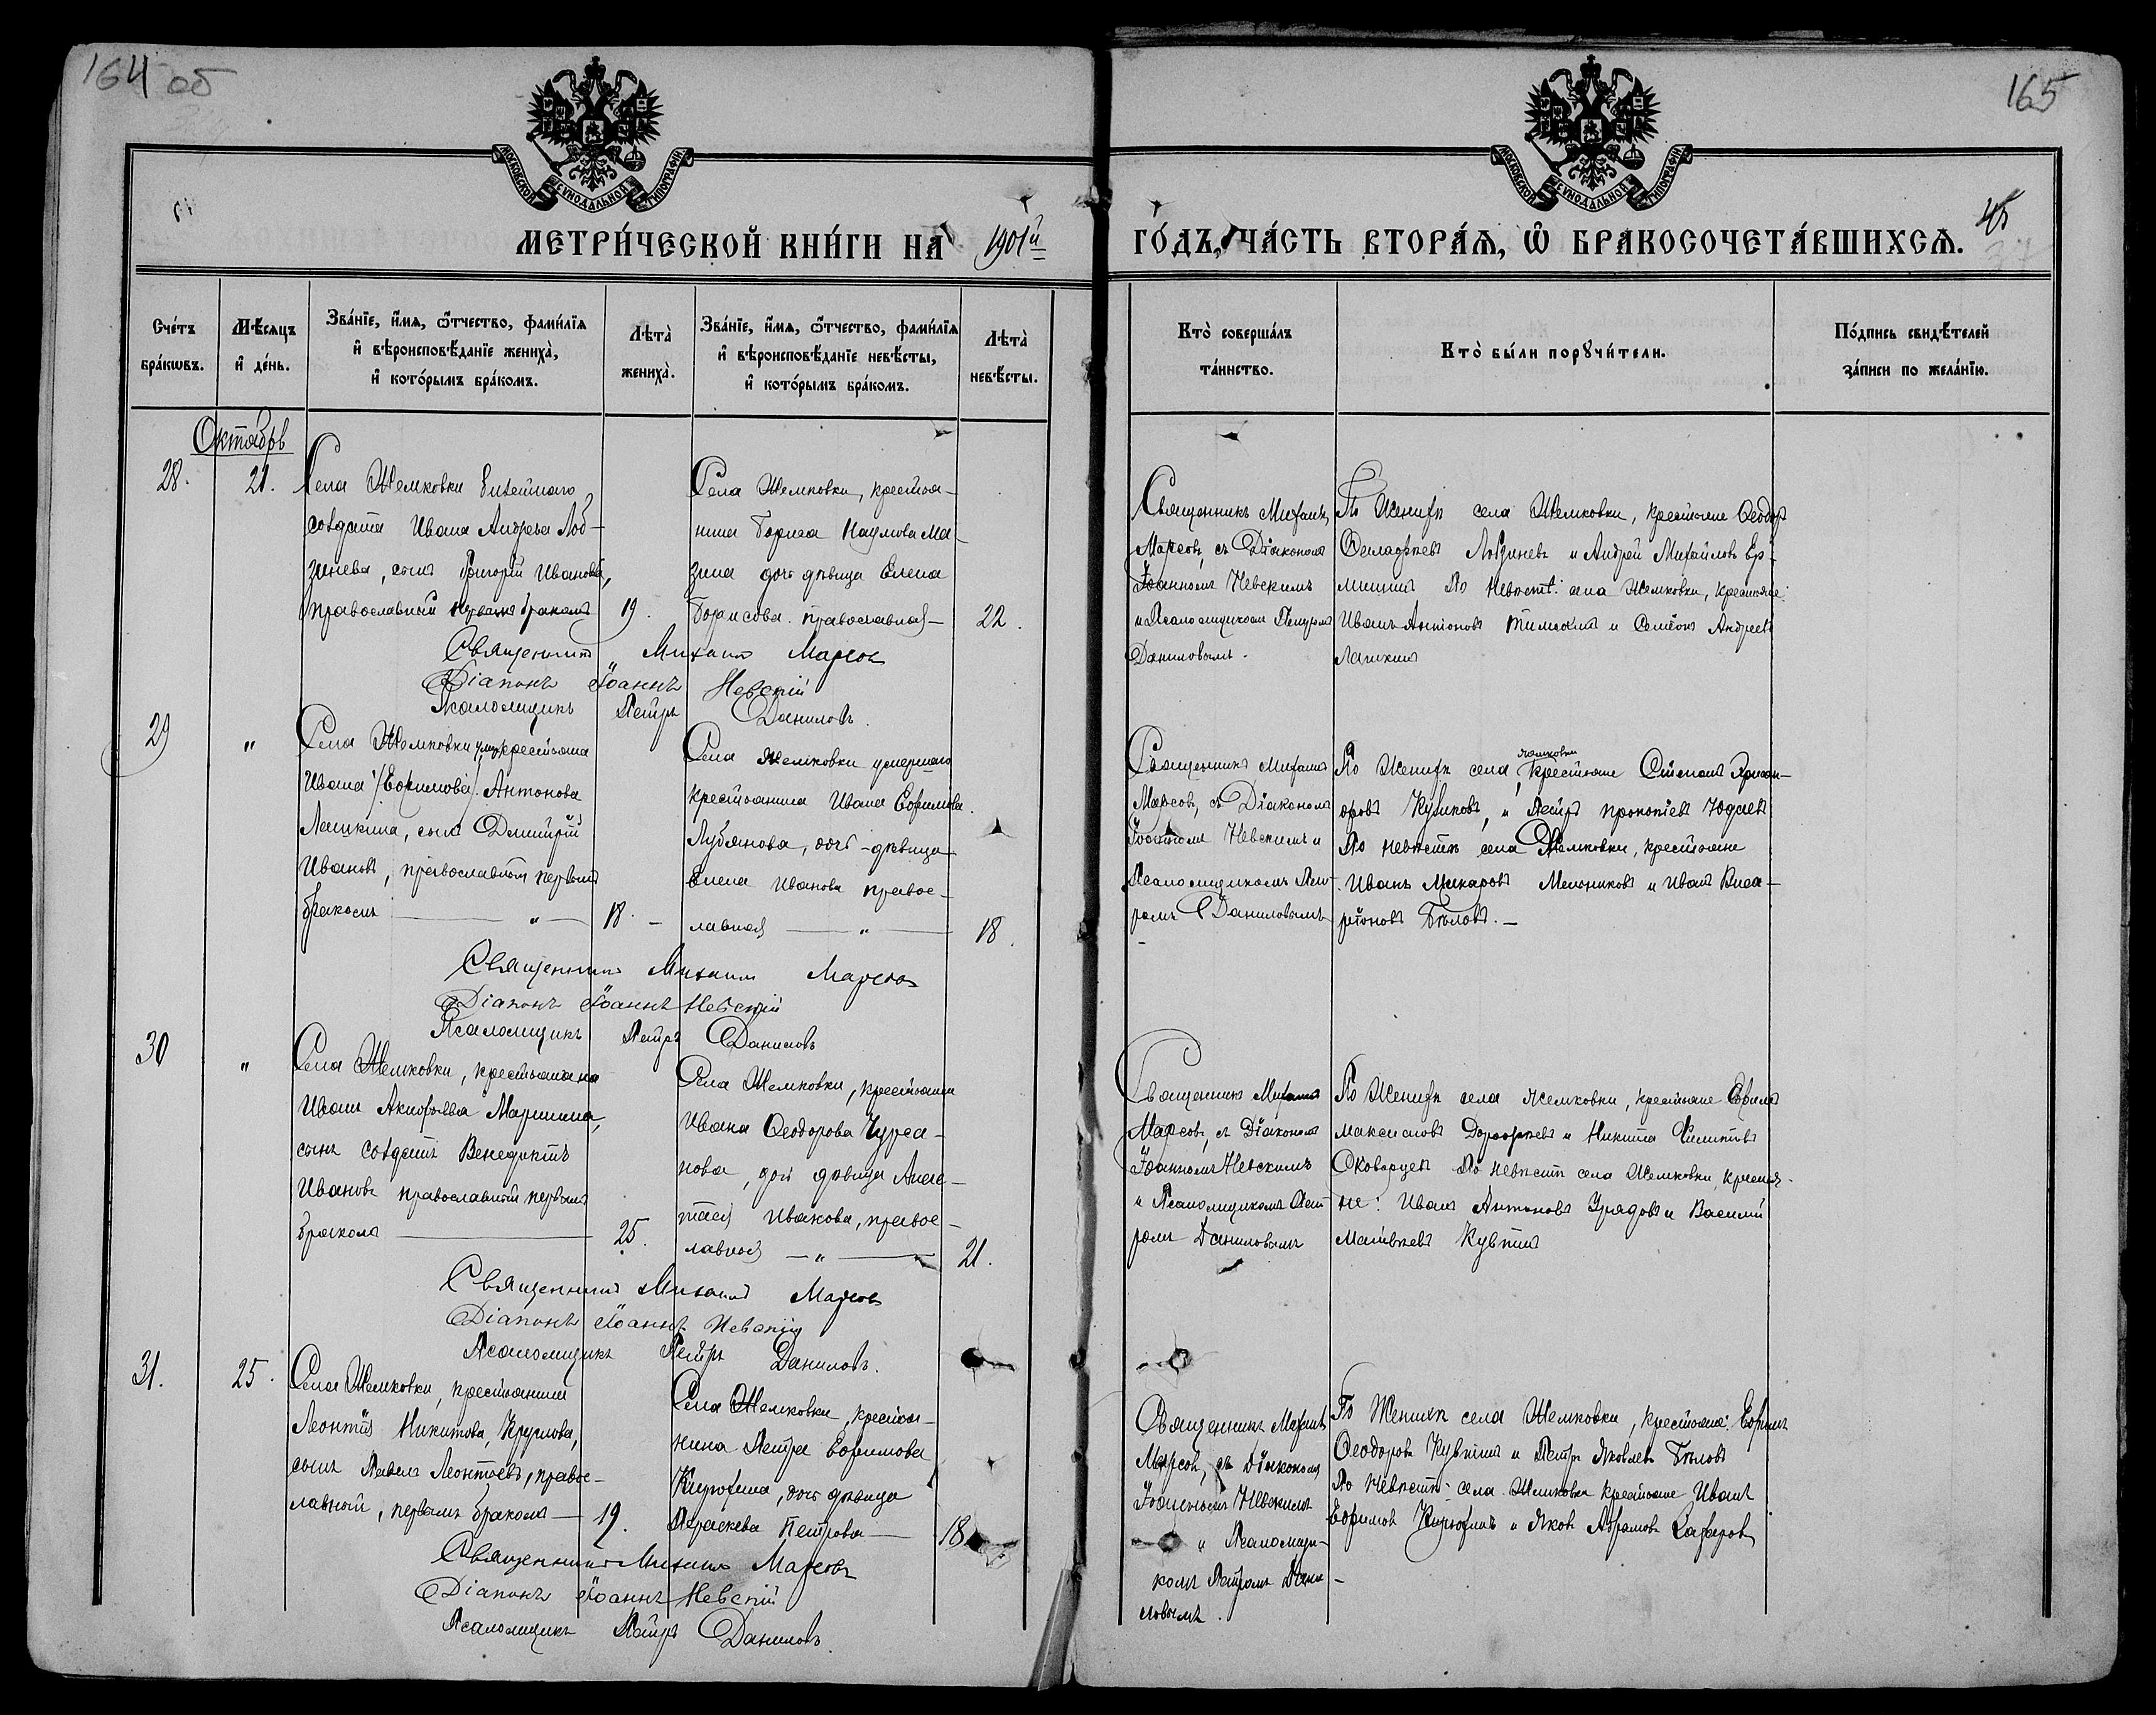 164 об
165
МОСКОВСКОЙ СУНОДАЛЬНОЙ ТИПОГРАФІИ
МОСКОВСКОЙ СУНОДАЛЬНОЙ ТИПОГРАФІИ
МЕТРИ́ЧЕСКОЙ КНИ́ГИ НА 1901й
ГО́ДЪ, ЧА́СТЬ ВТОРА́Я, Ѡ БРАКОСОЧЕТА́ВШИХСѦ.
45
Сче́тъ бра́кѡвъ.
Мѣ́сяцъ и де́нь.
Зва́нїе, и́мя, ѻ҆́тчество, фами́лїя и вѣроисповѣ́данїе жениха̀, и кото́рымъ бра́комъ.
Лѣта̀ жениха̀.
Зва́нїе, и́мя, ѻ҆́тчество, фами́лїя и вѣроисповѣ́данїе невѣ́сты, и кото́рымъ бра́комъ.
Лѣта̀ невѣ́сты.
Кто̀ соверша́лъ та́инство.
Кто̀ бы́ли порꙋчи́тели.
По́дпись свидѣ́телей за́писи по жела́нїю.
Октябрь
28.
21.
Села Жемковки билетнаго
солдата Ивана Андреева Лоб-
зинева, сынъ Григорій Ивановъ,
православный первымъ бракомъ
19.
Села Жемковки, крестья-
нина Бориса Наумова Ма-
зина дочь дѣвица Елена
Борисова. православная
22.
Священникъ Михаилъ
Марсовъ, съ Діакономъ
Іоанномъ Невскимъ
и Псаломщикомъ Петромъ
Даниловымъ.
По Женихѣ села Жемковки, крестьяне Ѳеодоръ
Лобзиневъ и Андрей Михайловъ Ер-
мишинъ По Невѣстѣ: села Жемковки, крестьяне:
Иванъ Антоновъ и Семёнъ Андреевъ
Лашкинъ
Священникъ Михаилъ Марсовъ
Діаконъ Іоаннъ Невскій
Псаломщикъ Петръ Даниловъ.
29
"
Села Жемковки умер. крестьянина
Ивана /Ефимова/ Антонова
Лашкина, сынъ Дмитрій
Ивановъ, православный первымъ
бракомъ — " —
18. —
Села Жемковки умершаго
крестьянина Ивана Ефимова
Лубянова, дочь - дѣвица
Елена Иванова правос-
лавная — " —
18.
Священникъ Михаилъ
Марсовъ, съ Діакономъ
Іоанномъ Невскимъ и
Псаломщикомъ Пет-
ромъ Даниловымъ
По Женихѣ села Жемковки крестьяне Степанъ
Куликовъ, и Петръ Прокопіевъ Юдаевъ
По невѣстѣ села Жемковки, крестьяне
Иванъ Макаровъ Мельниковъ и Иванъ Виса-
ріоновъ Бѣловъ. —
Священникъ Михаилъ Марсовъ
Діаконъ Іоаннъ Невскій
Псаломщикъ Петръ Даниловъ
30
"
Села Жемковки, крестьянина
Ивана Маришина,
сынъ солдатъ Венедиктъ
Ивановъ православный первымъ
бракомъ —
25.
Села Жемковки, крестьянина
Ивана Ѳеодорова Чурса-
нова, дочь дѣвица Анас-
тасія Иванова, правос-
лавная — " —
21.
Священникъ Михаилъ
Марсовъ, съ Діакономъ
Іоанномъ Невскимъ
и Псаломщикомъ Пет-
ромъ Даниловымъ
По Женихѣ села Жемковки, крестьяне Ефимъ
Максимовъ Дорофѣевъ и Никита
По невѣстѣ села Жемковки, крестья-
не: Иванъ Антоновъ Урядовъ и Василій
Матвѣевъ
Священникъ Михаилъ Марсовъ
Діаконъ Іоаннъ Невскій
Псаломщикъ Петръ Даниловъ.
31.
25.
Села Жемковки, крестьянина
Леонтія Никитова, Круглова,
сынъ Павелъ Леонтьевъ, правос-
лавный, первымъ бракомъ —
19.
Села Жемковки, крестья-
нина Петра Ефимова
Кирюхина, дочь дѣвица
Параскева Петрова —
18
Священникъ Михаилъ
Марсовъ, съ Діакономъ
Іоанномъ Невскимъ
и Псаломщи-
комъ Петромъ Дани-
ловымъ.
По Женихѣ села Жемковки, крестьяне: Ефимъ
Ѳеодоровъ и Петръ Яковлевъ Бѣловъ
По Невѣстѣ: села Жемковки крестьяне Иванъ
Ефимовъ Кирюхинъ и Яковъ Абрамовъ
Священникъ Михаилъ Марсовъ
Діаконъ Іоаннъ Невскій
Псаломщикъ Петръ Даниловъ.